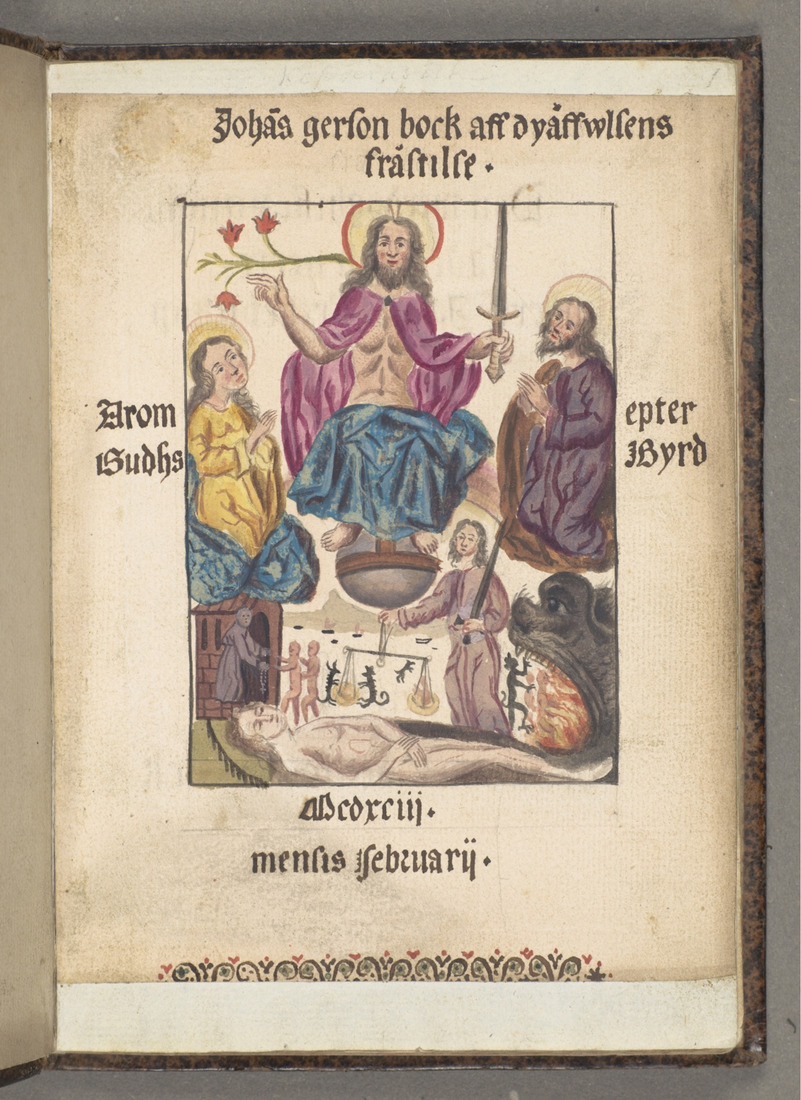 Johãs gerson bock aff dyäffwlsens
frästilse.
Arom epter
Gudhs Byrd
Mcdxciij.
mensis februarij.